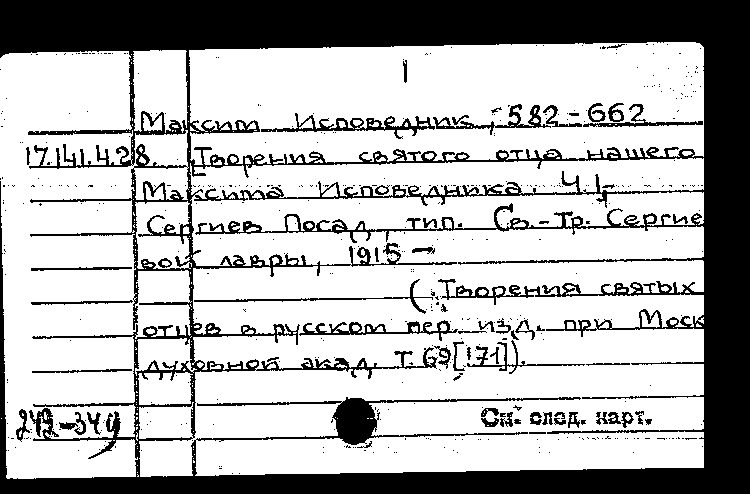 1
Максим Исповедник, 582-662
17.141.4.28. Творения святого отца нашего
Максима Исповедника. Ч.1-
Сергиев Посад, тип. Св.-Тр. Сергие
вой лавры, 1915 —
(Творения святых
отцев в русском пер. изд. при Моск
духовной акад. Т. 69[171]).
242-349
См. след. карт.